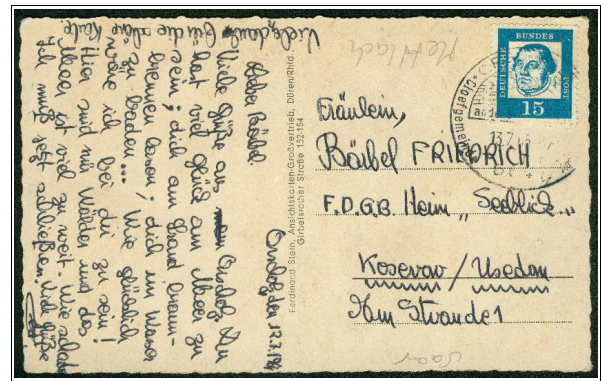 Vielen Dank für die schöne Karte.
Orscholz, den 12.7.
Liebe Bärbel.
Viele Grüße aus Orscholz. Du
hast viel Glück am Meer zu
sein; dich am Strand braun-
brennen lassen; dich im Wasser
zu baden... Wie glücklich
wäre ich bei dir zu sein!
Hier sind nur Wälder und das
Meer ist viel zu weit. Wie schade
Ich muß jetzt schließen. Viele Grüße
Ferdinand Stern, Ansichtskarten-Großvertrieb, Düren/Rhld.
Girbelsrather Straße 152-154
Mettlach
DEUTSCHE
BUNDES
POST
15
Cloef
13.7.
Fräulein,
Bärbel FRIEDRICH
F.D.G.B. Heim „Seeblick„
Koserow / Usedom
Am Strande 1
Saar